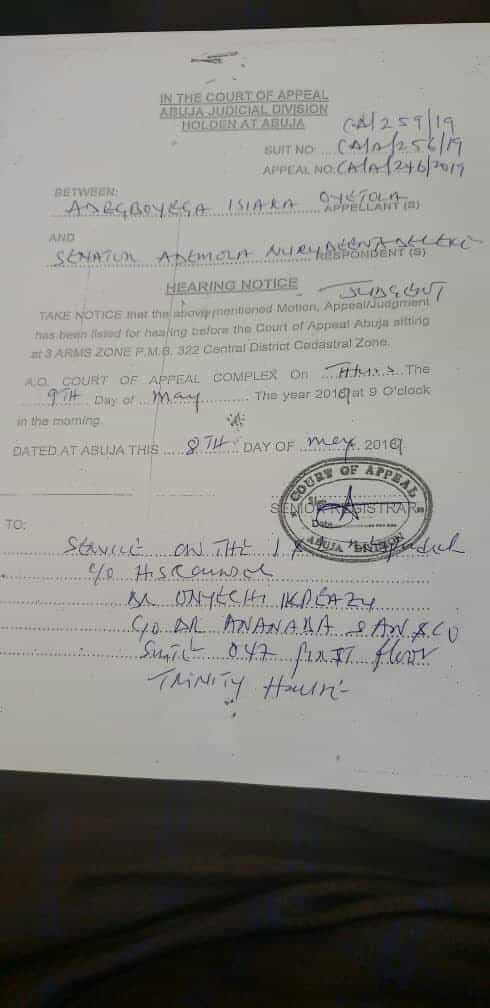 IN THE COURT OF APPEAL
ABUJA JUDICIAL DIVISION
HOLDEN AT ABUJA
CA/259/19
SUIT NO: CA/A/256/19
APPEAL NO: CA/A/246/2019
BETWEEN:
ADEGBOYEGA ISIAKA OYETOLA
APPELLANT (S)
AND
SENATOR ADEMOLA NURUDEEN ADELEKE
RESPONDENT (S)
HEARING NOTICE
JUDGENT
TAKE NOTICE that the above mentioned Motion, Appeal/Judgment
has been listed for hearing before the Court of Appeal Abuja sitting
at 3 ARMS ZONE P.M.B. 322 Central District Cadastral Zone.
A.O. COURT OF APPEAL COMPLEX On Thurs The
9TH Day of May The year 2019 at 9 O'clock
in the morning
DATED AT ABUJA THIS 8TH DAY OF May 2019
COURT OF APPEAL
Sign
SENIOR REGISTRAR
Date
ABUJA DIVISION
TO:
SERVICE ON THE 1st
C/O HIS COUNSEL
DR ONYECHI IKPEAZU
C/O DR ANANABA SAN & CO
SUITE 047 FIRST floor
TRINITY HOUSE